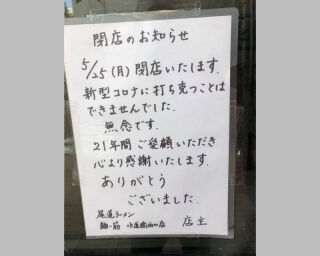 閉店のお知らせ
5/25(月)閉店いたします.
新型コロナに打ち克つことは
できませんでした.
無念です.
21年間 ご愛顧いただき
心より感謝いたします.
ありがとう
ございました.
尾道ラーメン
麺一筋 水道橋西口店
店主